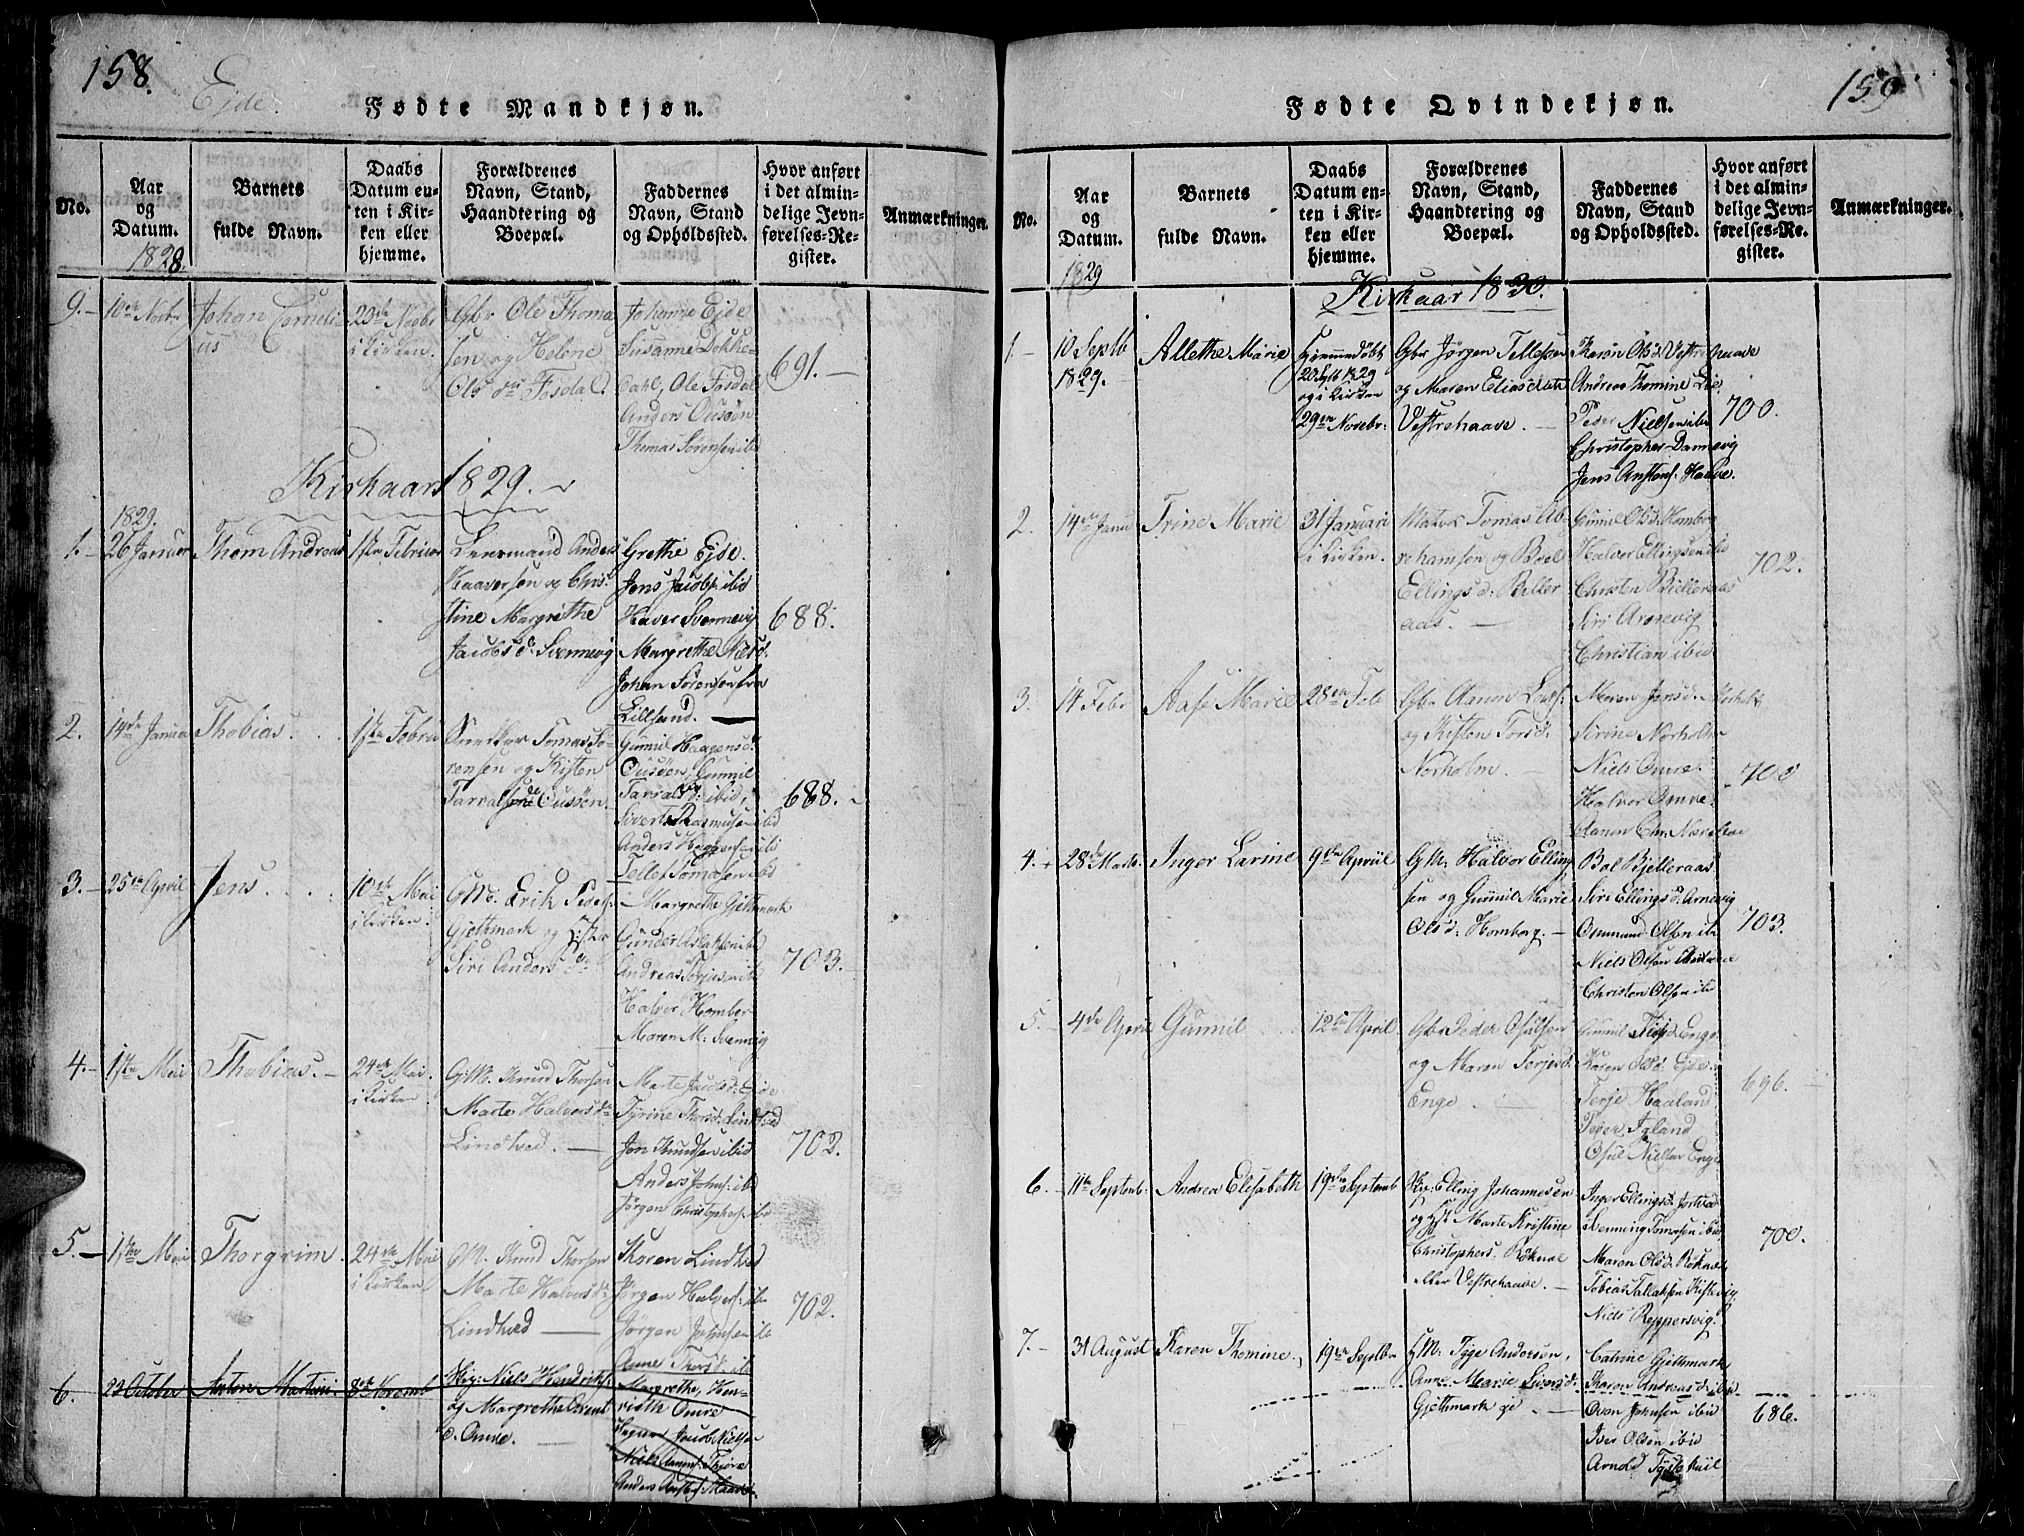 158.
Ejde.
Fødte Mandkjøn.
No.
Aar
og
Datum.
1828.
Barnets
fulde Navn.
Daabs
Datum en-
ten i Kir-
ken eller
hjemme.
Forældrenes
Navn, Stand,
Haandtering og
Boepæl.
Faddernes
Navn, Stand
og Opholdssted.
Hvor anført
i det almin-
delige Jevn-
førelses-Re-
gister.
Anmærkninger.
9.
10de Novbr
Johan Corneli-
us
23de Novbr
i Kirken.
Gbr Ole Thoma
sen og Helene
Ols dtr Fosdal.
Johanne Ejde
Susanne Dokke-
dahl, Ole Fosdal
Anders Ousøen
Thomas Sørensen ibid
691.
Kirkaar 1829.
1829.
1.
26 Januar
Thom Andreas
1ste Februar
Lensmand Anders
Haaversen og Chri-
stine Margrethe
Jacobsd. Svennevig
Grethe Ejde.
Jens Jacobs. ibid
Haver Svennevig
Margrethe Nielsd.
Johan Sørensen fra
Lillesand.
688.
2.
14de Januar
Thobias.
1ste Februar
Snedker Tomas Sø-
rensen og Kisten
Tarvalsde Oussøn.
Gunnil Haagensd.
Ousøen, Gunnil
Tarvalsd: ibid,
Sivert Rasmusen ibid
Anders Haagensen ibid
Tellef Tomasen ibid
688.
3.
25de April
Jens
10de Mai
i Kirken.
GM. Erik Peders.
Gjethmark og Hustru
Siri Andersd.
Margrethe Gjethmark
Gunder Aslaksen ibid
Andreas Terjesen ibid
Halvor Homber
Maren M. Svennevig
703.
4.
1ste Mai
Thobias.
24de Mai.
i Kirken.
GM. Knud Thorsen
Marte Halvorsdr
Lindtved.
Marte Jacobsd: Ejde
Tyrine Thorsd. Lindtved
Jon Knudsen ibid
Anders Johns. ibid
Jørgen Christophers. ibid
702.
5.
1ste Mai
Thorgrim.
24de Mai
i Kirken
GM. Knud Thorsen
Marte Halvorsdr
Lindtved
Karen Lindtved
Jørgen Halvors. ibid
Jørgen Johnsen ibid
Anne Thorsd. ib
702.
6.
29 October
Anton Martin.
8de Novemb
Niels Hendriks.
og Margrethe
d. Omre.
Margrethe, Hen-
rieth Omre
Jacob Nielsen
Niels
Anders
159
Fødte Qvindekjøn.
No.
Aar
og
Datum.
1829
Barnets
fulde Navn.
Daabs
Datum en-
ten i Kir-
ken eller
hjemme.
Forældrenes
Navn, Stand,
Haandtering og
Boepæl.
Faddernes
Navn, Stand
og Opholdssted.
Hvor anført
i det almin-
delige Jevn-
førelses-Re-
gister.
Anmærkninger.
Kirkaar 1830.
1
10 Septb
1829.
Allethe Marie
Hjemmedøbt
20 Septb 1829
og i Kirken
29de Novebr.
Gbr Jørgen Tellefsen
og Maren Eliasdatr
Vestrehaave.
Karen Olsd Vestrehaave
Andrea Thomine Lie
Peder Nielsen ibid
Christopher Dannevig
Jens Anstens. Haave.
700.
2.
14de Janu
Trine Marie
31 Januari
i Kirken.
Matros Tomas Ab-
rahamsen og Boel
Ellingsd. Beller
aas.
Gunnil Olsd. Homborg
Halvor Ellingsen ibid
Christen Bielleraas
Siri Arnevig
Christian ibid
702.
3.
14 Febr
Aase Marie
28de Feb
Gbr Aanon Lars.
og Kisten Torsd.
Norholm.
Maren Jensd.
Serine Norholm
Niels Omre.
Halvor Omre.
Aanon Chr. Norholm
700
4.
28de Marts.
Inger Larine
9de Apriil
GM. Halvor Elling
sen og Gunnil Marie
Olsd. Homborg.
Bol Bjelleraas
Siri Ellingsd. Arnevig
Ommund Olsen ib
Niels Olsen
Christen Olsen ib
703.
5.
4de April
Gunnil
12te April
Gbr Peder Osulsen
og Maren Terjesd.
Enge.
Gunnil Enge
Karen Olsd. Ejde.
Terje Haaland
Peder Igland
Osul Nielsen Enge
696.
6.
11te Septemb.
Andrea Elisabeth
19de Septemb
Elling Johannesen
og Hst Marte Kristine
Christophers. Røknæs
eller Vestrehaave.
Inger Ellingsd.
Svenning Tomasen ibid
Maren Olsd. Røknæs
Tobias Tallaksen Kistevig
Niels Reppersvig.
700.
7.
31 August
Karen Thomine
19de Septbr
HM. Tyge Andersen,
Anne Marie Siversd.
Gjethmark
Catrine Gjethmark
Karen Andreasd. ibid
Oven Johnsen ibid
Iver Olsen ibid
Arnold
686.